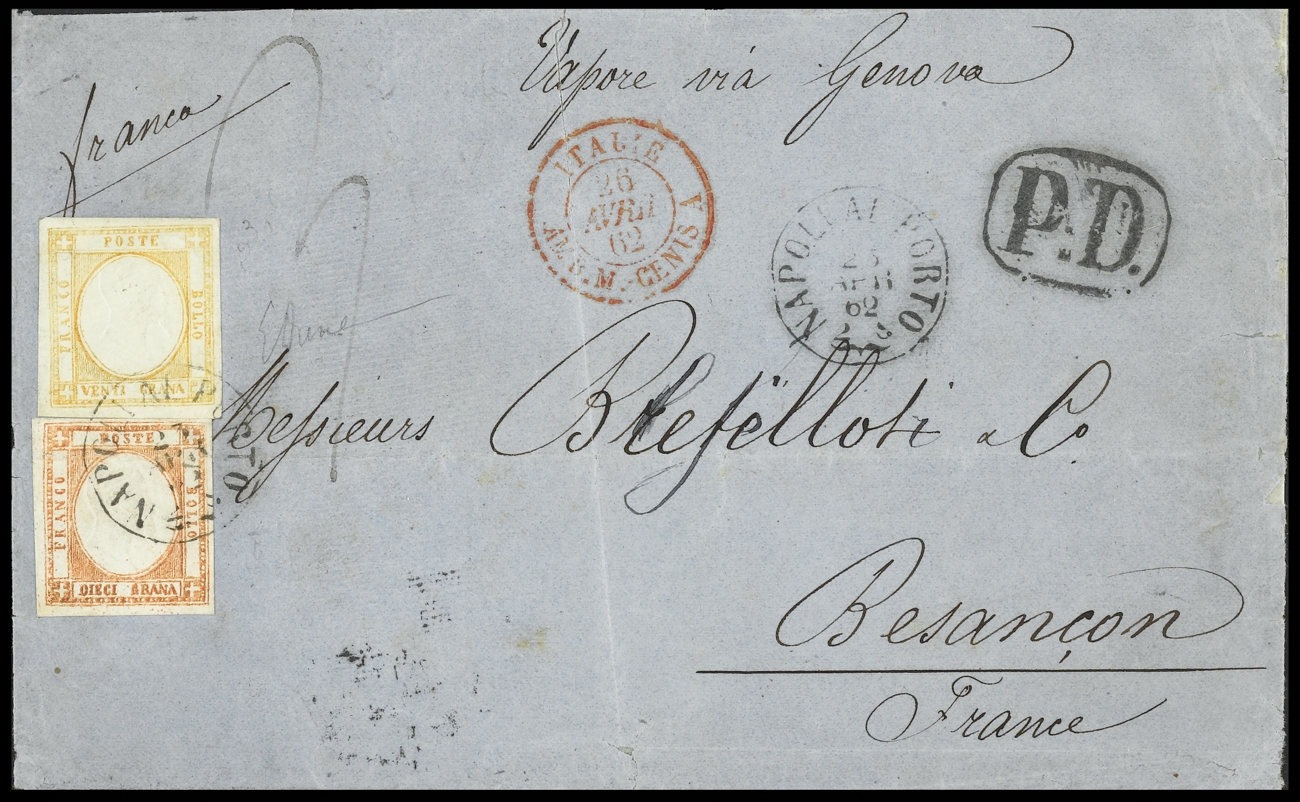 Vapore via Genova
franco
ITALIE
26
AVRIL
62
AMB. M. CENIS
NAPOLI AL PORTO
62
P.D.
POSTE
FRANCO
BOLLO
VENTI GRANA
Messieurs Brefëlloti & Co
POSTE
FRANCO
BOLLO
DIECI GRANA
NAPOLI AL PORTO
Besançon
France